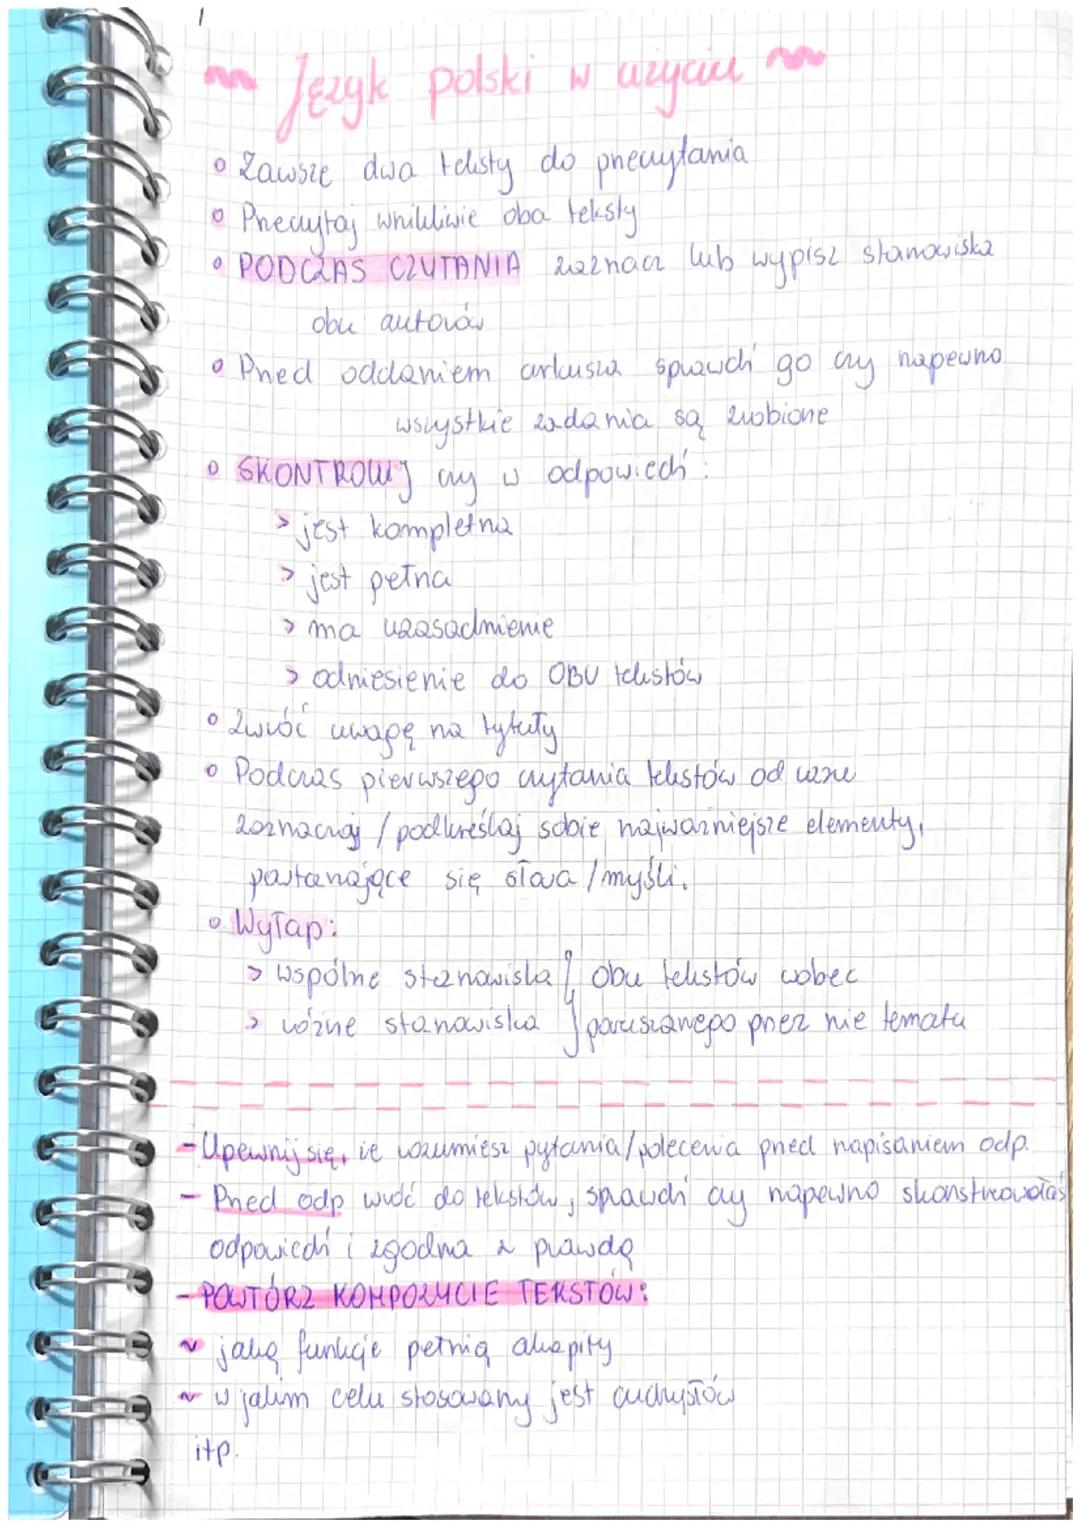 Język polski w użyciu
Zawsze dwa teksty do przeczytania
Przeczytaj wnikliwie oba teksty
PODCZAS CZYTANIA zaznacz lub wypisz stanowiska
obu autorów
Przed oddaniem arkusza sprawdź go czy napewno
wszystkie zadania są zrobione
SKONTROLUJ czy w odpowiedź:
> jest kompletna
> jest pełna
> ma uzasadnienie
> odniesienie do OBU tekstów
Zwróć uwagę na tytuły
Podczas pierwszego czytania tekstów od razu
zaznaczaj / podkreślaj sobie najważniejsze elementy,
powtarzające się słowa / myśli.
Wyłap:
> wspólne stanowiska } obu tekstów wobec
> różne stanowiska } poruszanego przez nie tematu
- Upewnij się, że rozumiesz pytania/polecenia przed napisaniem odp.
- Przed odp wróć do tekstów, sprawdź czy napewno skonstruowałaś
odpowiedź i zgodna z prawdą
- POWTÓRZ KOMPOZYCIE TEKSTÓW:
~ jaką funkcje pełnią akapity
~ w jakim celu stosowany jest cudzysłów
itp.